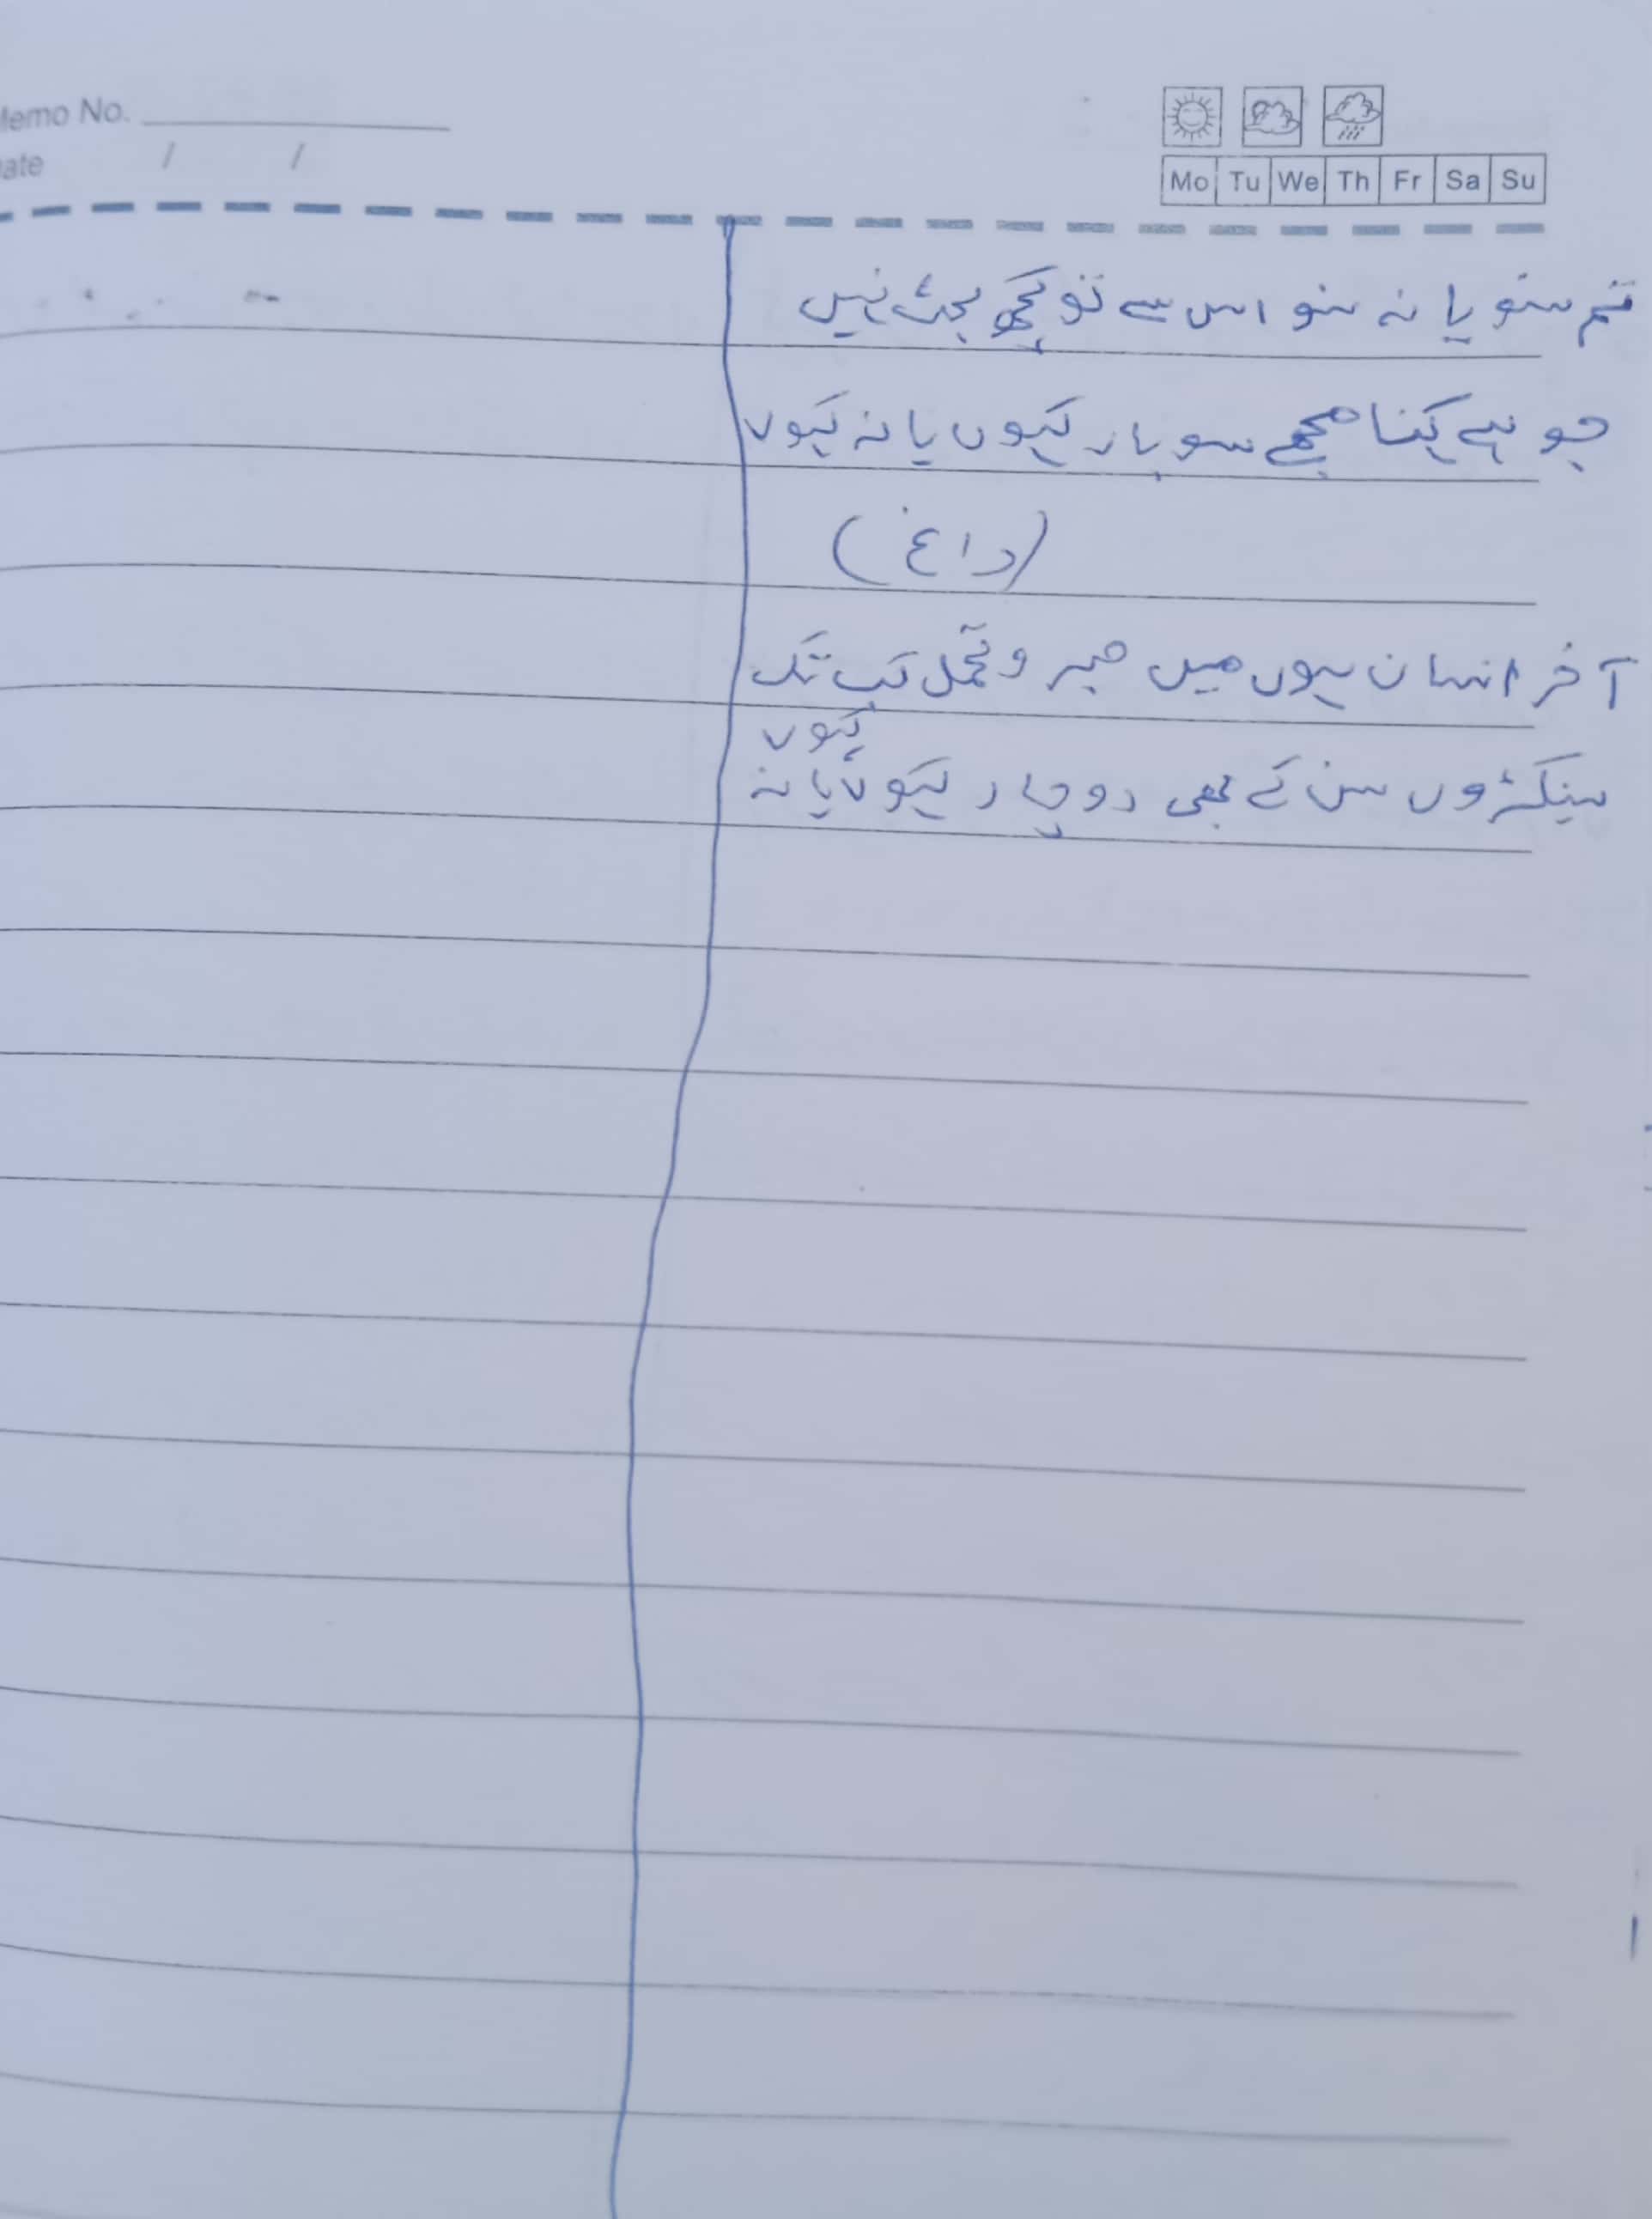 Memo No.
Date / /
Mo Tu We Th Fr Sa Su
تم سنو یا نہ سنو اس سے تو کچھ بحث نہیں
جو ہے کہنا مجھے سو بار کہوں یا نہ کہوں
(داغ)
آخر انسان ہوں میں صبر و تحمل کب تک
سینکڑوں سن کے بھی دو چار کہوں یا نہ
کہوں